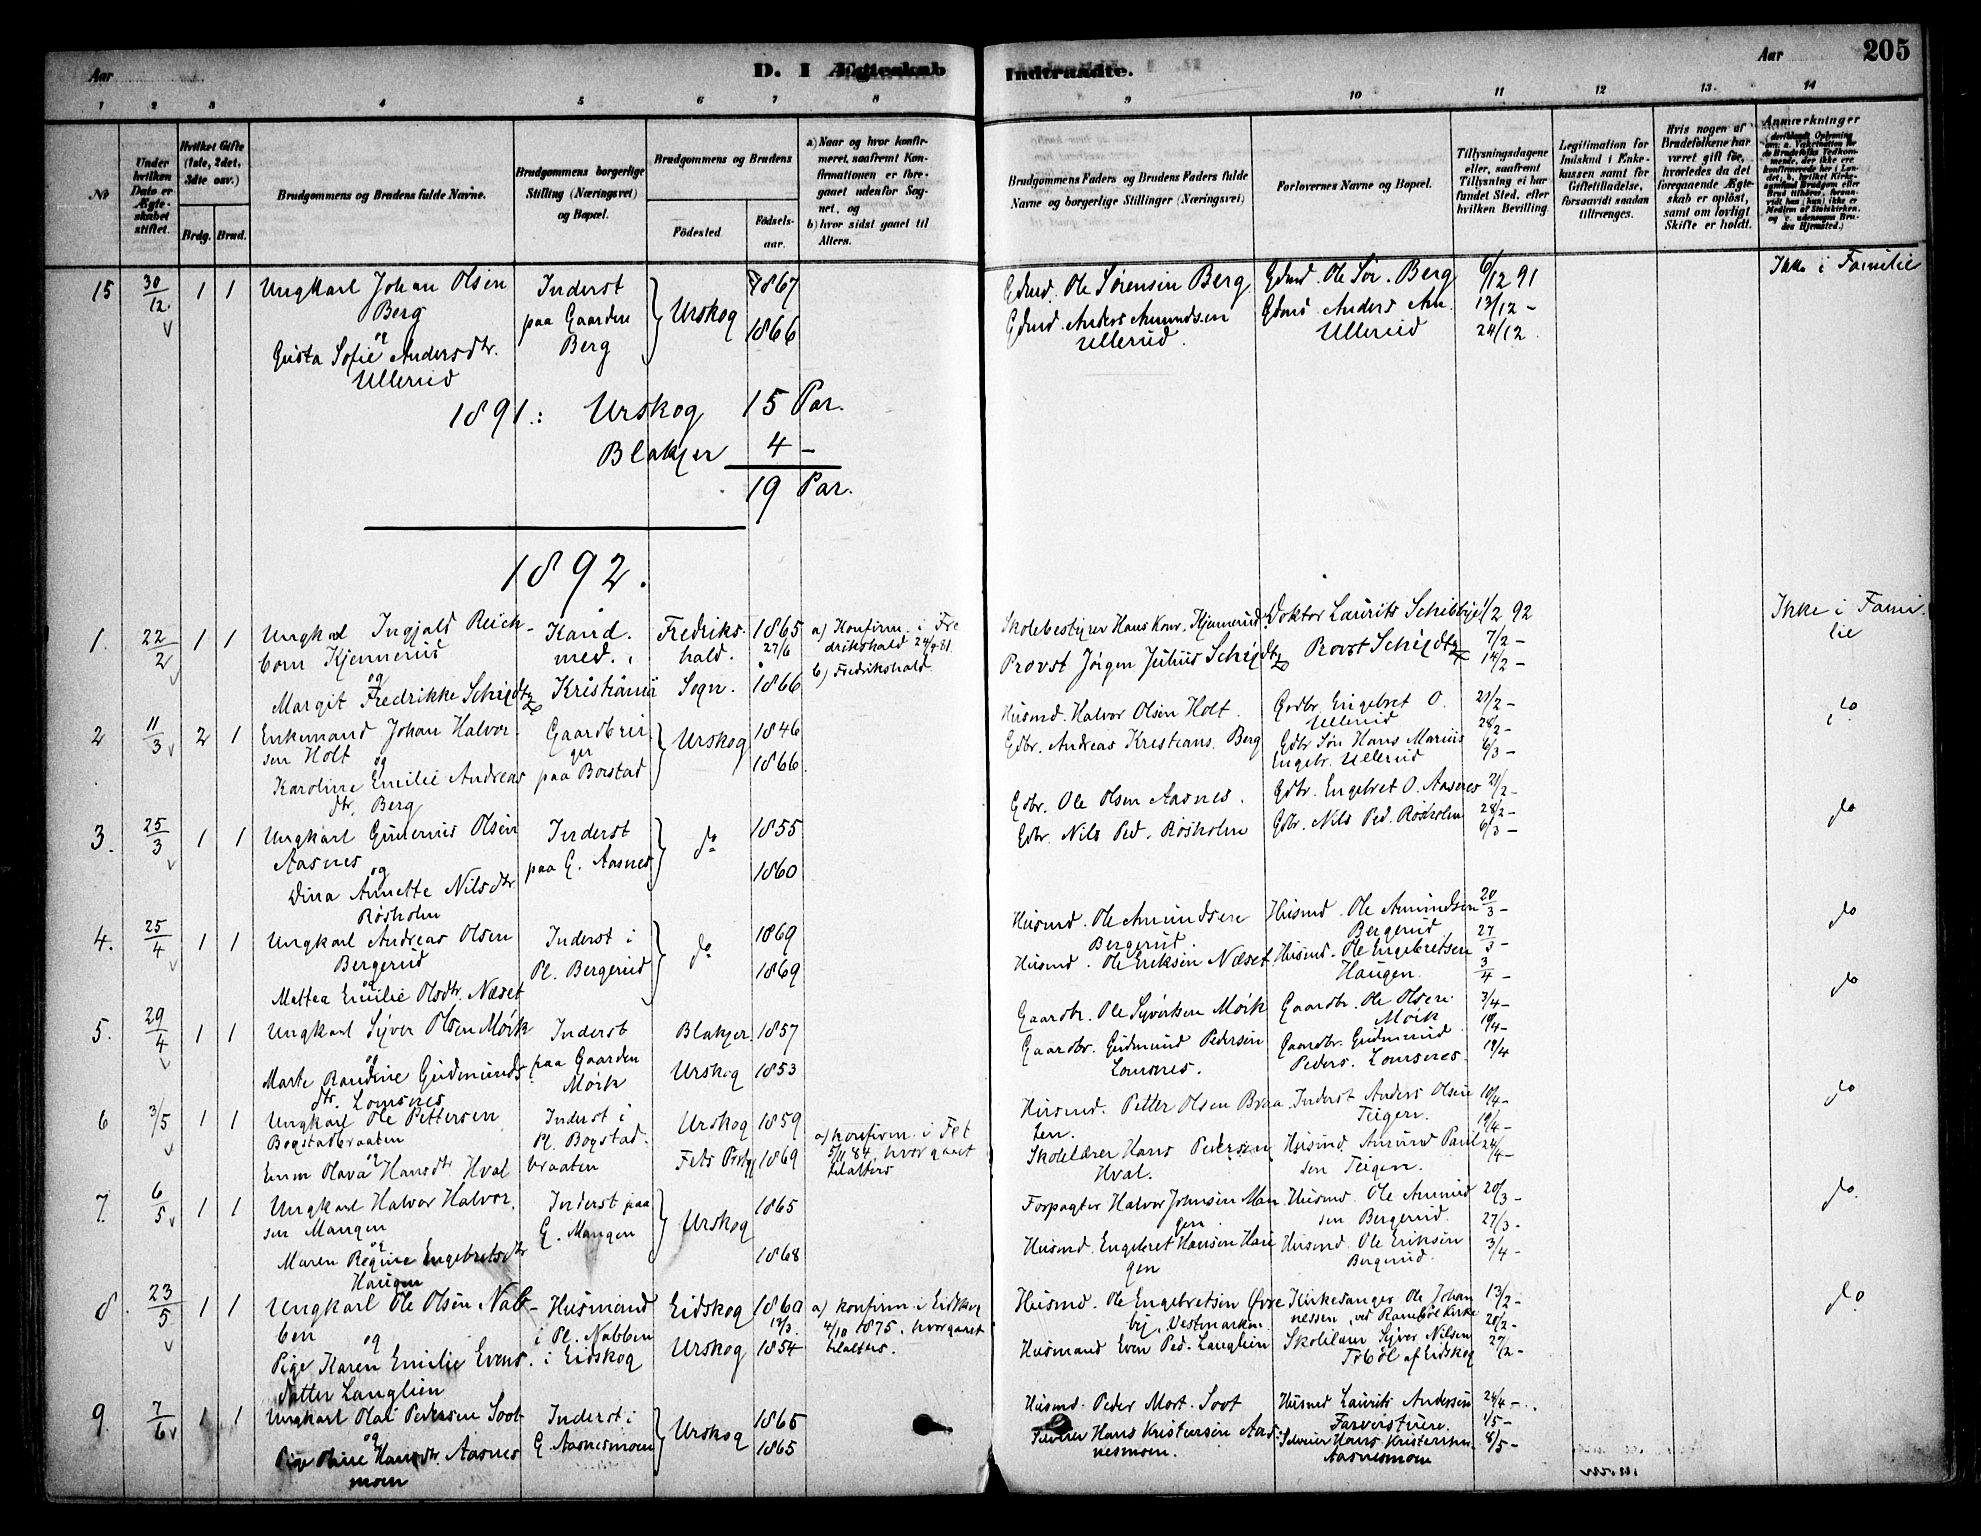 Aar
D. I Ægteskab
Indtraadte.
Aar
205
1 2 3 4 5 6 7 8 9 10 11 12 13 14
No
Under hvilken Dato er Ægteskabet stiftet.
Hvilket Gifte (1ste, 2det, 3die osv.)
Brdg. Brud.
Brudgommens og Brudens fulde Navne.
Brudgommens borgerlige Stilling (Næringsvei) og Bopæl.
Brudgommens og Brudens
Fødested.
Fødselsaar.
a) Naar og hvor konfirmeret, saafremt Konfirmationen er foregaaet udenfor Sognet, og
b) hvor sidst gaaet til Alters.
Brudgommens Faders og Brudens Faders fulde Navne og borgerlige Stillinger (Næringsvei)
Forlovernes Navne og Bopæl.
Tillysningsdagene eller, saafremt Tillysning ei har fundet Sted, efter hvilken Bevilling.
Legitimation for Indskud i Enkekassen samt for Giftetilladelse, forsaavidt saadan tiltrænges.
Hvis nogen af Brudefolkene har været gift før, hvorledes da det foregaaende Ægteskab er opløst, samt om lovligt Skifte er holdt.
Anmærkninger
15 30/12 1 1 Ungkarl Johan Olsen
Berg
og
Gusta Sofie Andersdtr.
Ullerud
Inderst
paa Gaarden
Berg
Urskog
1867
1866
Gdmd. Ole Sørensen Berg
Gdmd. Anders Amundsen
Ullerud.
Gdmd. Ole Sør. Berg
Gdmd Anders Am
Ullerud
6/12 91
13/12 –
24/12
Ikke i Familie
1891: Urskog 15 Par.
Blakjer 4 –
19 Par.
1892.
1. 22/2 1 1 Ungkarl Ingjald Reich-
born Kjennerud
og
Margit Fredrikke Schigdtz
Kand.
med.,
Kristiania
Fredriks-
hald.
Sogn.
1865
27/6
1866
a) Konfirm. i Fre
drikshald 24/4 81.
b) Fredrikshald.
Skolebestyrer Hans Konr. Kjennerud.
Provst Jørgen Julius Schigdtz
Doktor Laurits Schibbye
Provst Schigdtz
1/2 92
7/2 –
14/2 –
Ikke i Fami-
lie
2 11/3 2 1 Enkemand Johan Halvor-
sen Holt
og
Karoline Emilie Andreas
dtr. Berg
Gaardbrü
ger
paa Borstad
Urskog
1846
1866.
Husmd. Halvor Olsen Holt.
Gdbr. Andreas Kristians. Berg
Gdbr. Engebret O.
Ullerud
Gdbr Søn Hans Marius
Engebr. Ullerud
21/2 –
28/2 –
6/3 –
do
3. 25/3 1 1 Ungkarl Gunerius Olsen
Aasnes
og
Dina Annette Nilsdtr
Røsholm
Inderst
paa G. Aasnes
do
1855
1860
Gdbr. Ole Olsen Aasnes.
Gdbr. Nils Ped. Røsholm
Gdbr. Engebret O. Aasnes
Gdbr. Nils Ped. Røsholm
21/2 –
28/2 –
6/3 –
do
4. 25/4 1 1 Ungkarl Andreas Olsen
Bergerud
og
Mattea Emilie Olsdtr. Næset
Inderst i
Pl. Bergerud
do
1869
1869
Husmd. Ole Amundsen
Bergerud.
Husmd. Ole Eriksen Næset
Husmd. Ole Amundsen
Bergerud.
Husmd. Ole Engebretsen
Haugen.
20/3 –
27/3 –
3/4 –
do
5. 29/4 1 1 Ungkarl Syver Olsen Mørk
og
Marte Randine Gudmunds
dtr. Lomsnes
Inderst
paa Gaarden
Mørk
Blakjer
Urskog
1857
1853
Gaardbr. Ole Syvertsen Mørk
Gaardbr. Gudmund Pedersen
Lomsnes.
Gaardbr. Ole Olsen
Mørk
Gaardbr. Gudmund
Peders. Lomsnes.
3/4 –
10/4 –
19/4
do
6 3/5 1 1 Ungkarl Ole Pettersen
Bogstadbraaten
og
Emm Olava Hansdtr Hval
Inderst i
Pl. Bogstad-
braaten
Urskog
Fets Prstg
1859
1869
a) konfirm. i Fet
5/11 84, hvor gaaet
tilalters
Husmd. Petter Olsen Braa
ten.
Skolelærer Hans Pedersen
Hval.
Inderst Anders Olsen
Teigen.
Husmd. Amund Paul
sen Teigen.
10/4 –
19/4 –
24/4 –
do
7. 6/5 1 1 Ungkarl Halvor Halvor-
sen Mangen
og
Maren Regine Engebretsdtr
Haugen
Inderst paa
G. Mangen
Urskog
1865
1868
Forpagter Halvor Johnsen Man
gen.
Husmd. Engebret Hansen Hau
gen
Husmd. Ole Amund
sen Bergerud.
Husmd. Ole Eriksen
Bergerud.
20/3 –
27/3 –
3/4 –
do.
8. 23/5 1 1 Ungkarl Ole Olsen Nab-
ben
og
Pige Karen Emilie Evens-
datter Langlien
Husmand
i Pl. Nabben
i Eidskog
Eidskog
Urskog
1860
12/3.
1854
a) konfirm. i Eidskog
4/10 1875, hvor gaaet
tilalters.
Husmd. Ole Engebretsen Øvre
by, Vestmarken
Husmand Even Ped. Langlien
Kirkesanger Ole Johan
nessen, ved Rambøl Kirke
Skolelærer Syver Nilsen
Tobøl af Eidskog
13/2 –
20/2 –
27/2 –
do
9. 7/6 1 1 Ungkarl Olai Pedersen Soot
og
Pige Oline Hansdtr. Aasnes
moen
Inderst i
G. Aasnesmoen
Urskog
1865
1865
Husmd. Peder Mort. Soot
Hans Kristensen Aas-
nesmoen.
Husmd Laurits Andersen
Hans Kristensen
Aasnesmoen
24/4 –
1/5 –
8/5 –